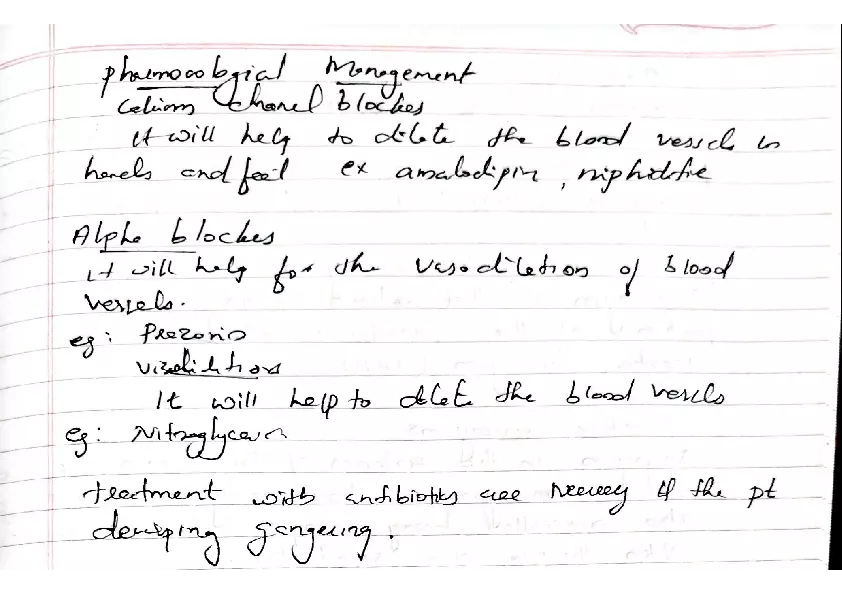 pharmocological Management
Calcium Chanel blockes
It will help to dilate the blood vessels in
hands and feet ex amalodipin, niphidifie
Alpha blockes
it will help for the vasodilation of blood
vessels.
eg: Prazosin
vasodilators
It will help to dilate the blood vessels
eg: Nitroglycerin
treatment with antibiotics are if the pt
gangering.